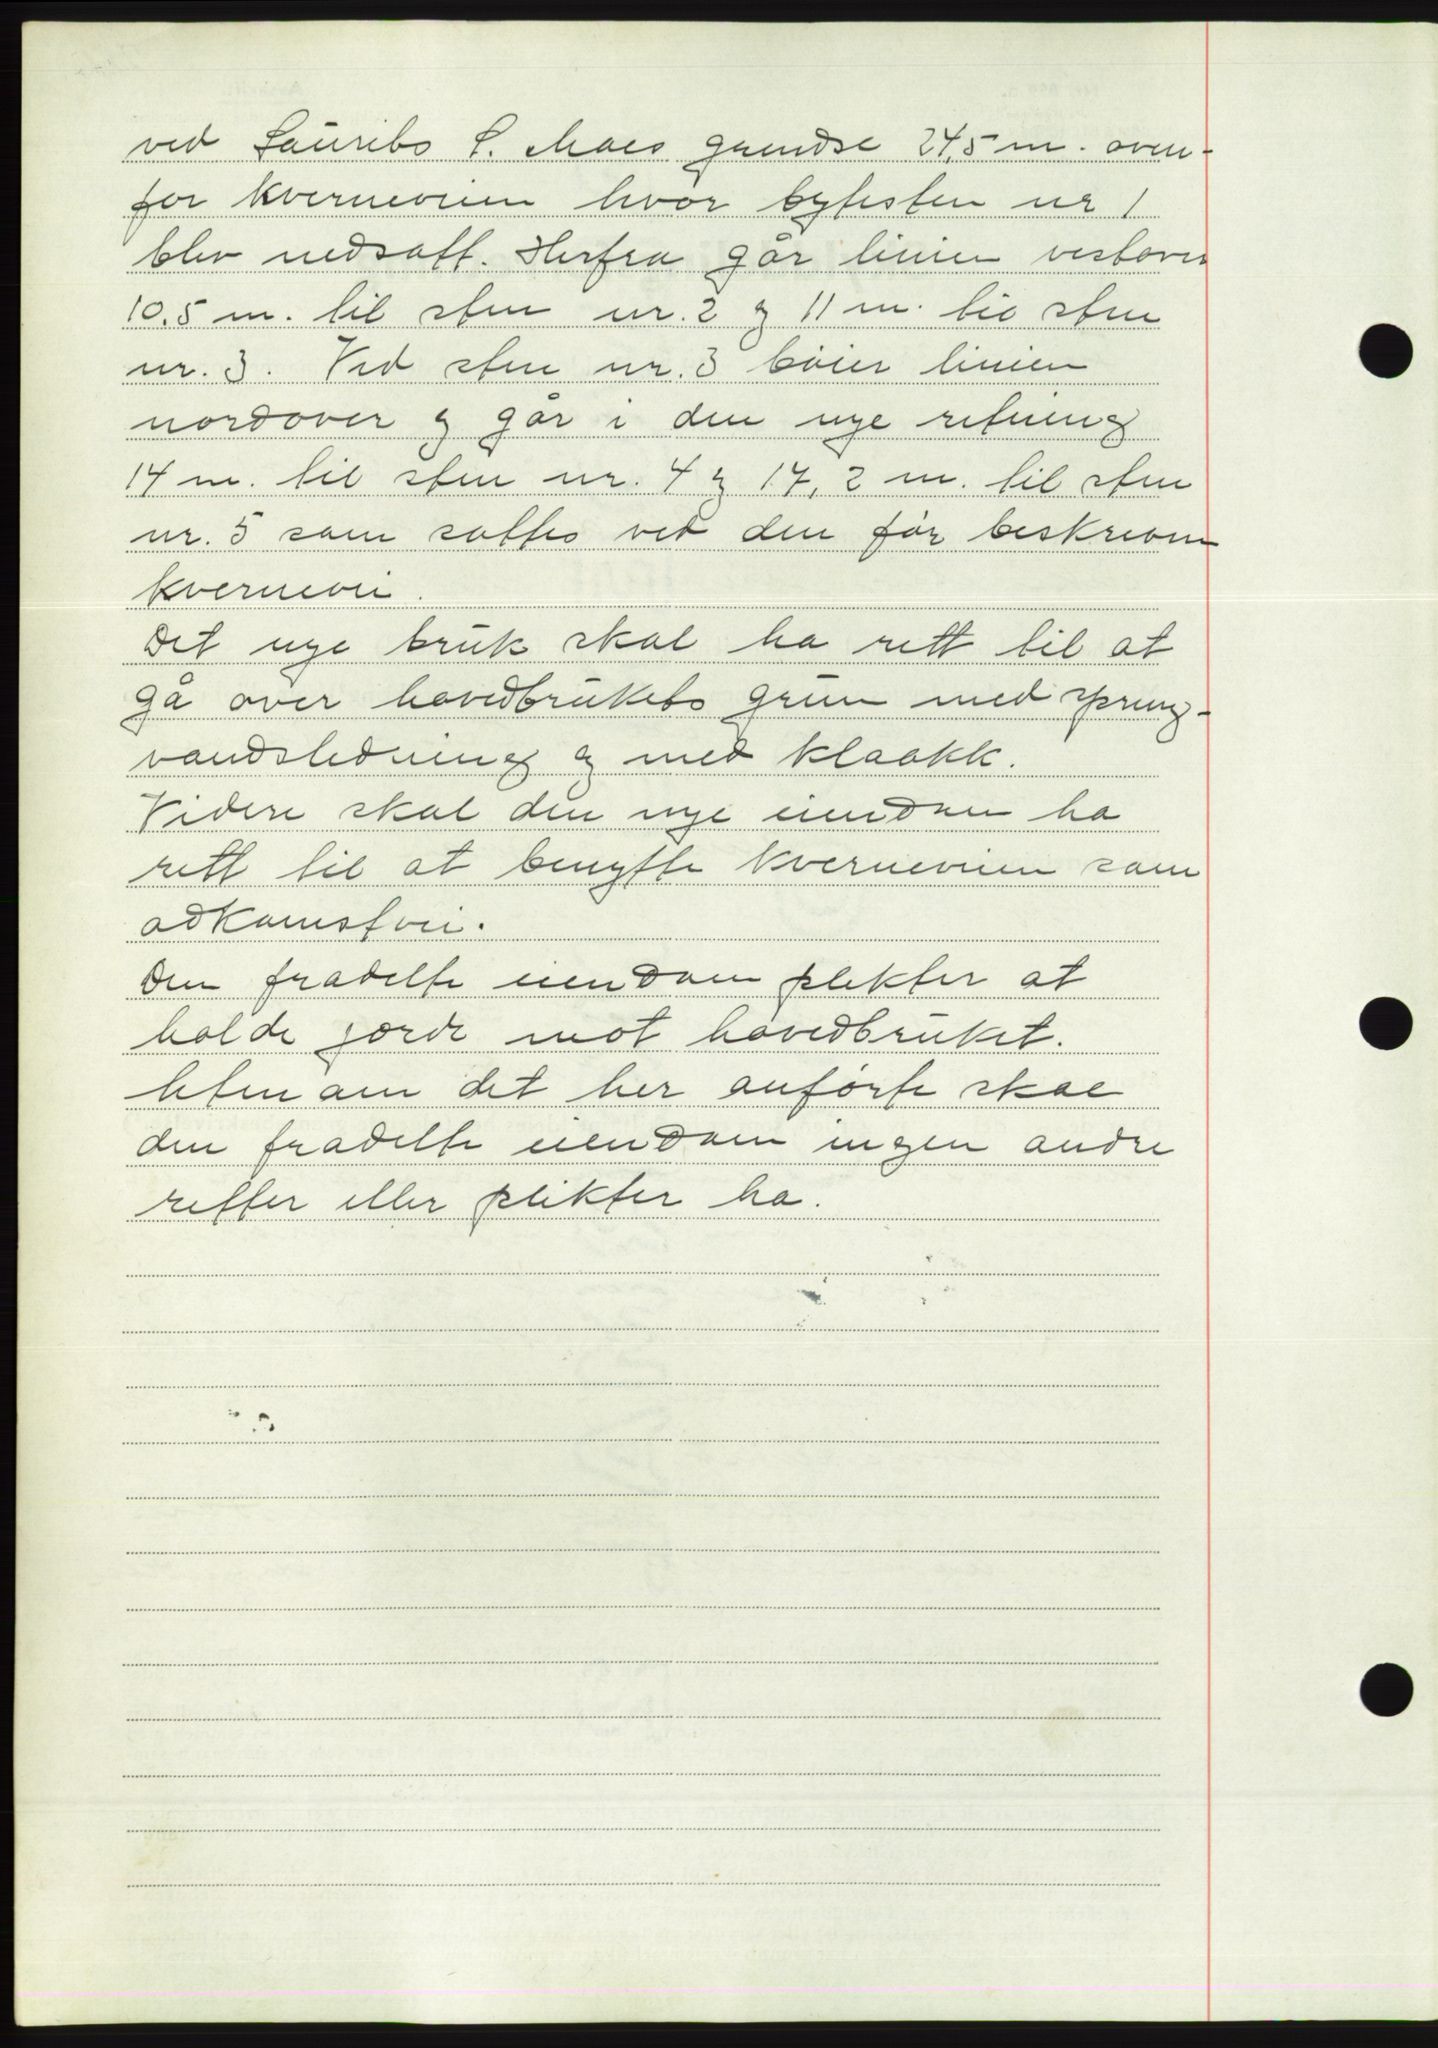 ved Laurits L. Moes grendse 24,5 m. oven-
for kverneveien hvor bytesten nr 1
blev nedsatt. Herfra går linien vestover
10.5 m. til sten nr. 2 og 11 m. til sten
nr. 3. Ved sten nr. 3 böier linien
nordover og går i den nye retning
14 m. til sten nr. 4 og 17,2 m. til sten
nr. 5 som sattes ved den før beskrevne
kvernevei.
Det nye bruk skal ha rett til at
gå over hovedbrukets grun med spring-
vandsledning og med kloakk.
Videre skal den nye eiendom ha
rett til at benytte kverneveien som
adkomstvei.
Den fradelte eiendom plikter at
holde gjærde mot hovedbruket.
Uten om det her anførte skal
den fradelte eiendom ingen andre
retter eller plikter ha.